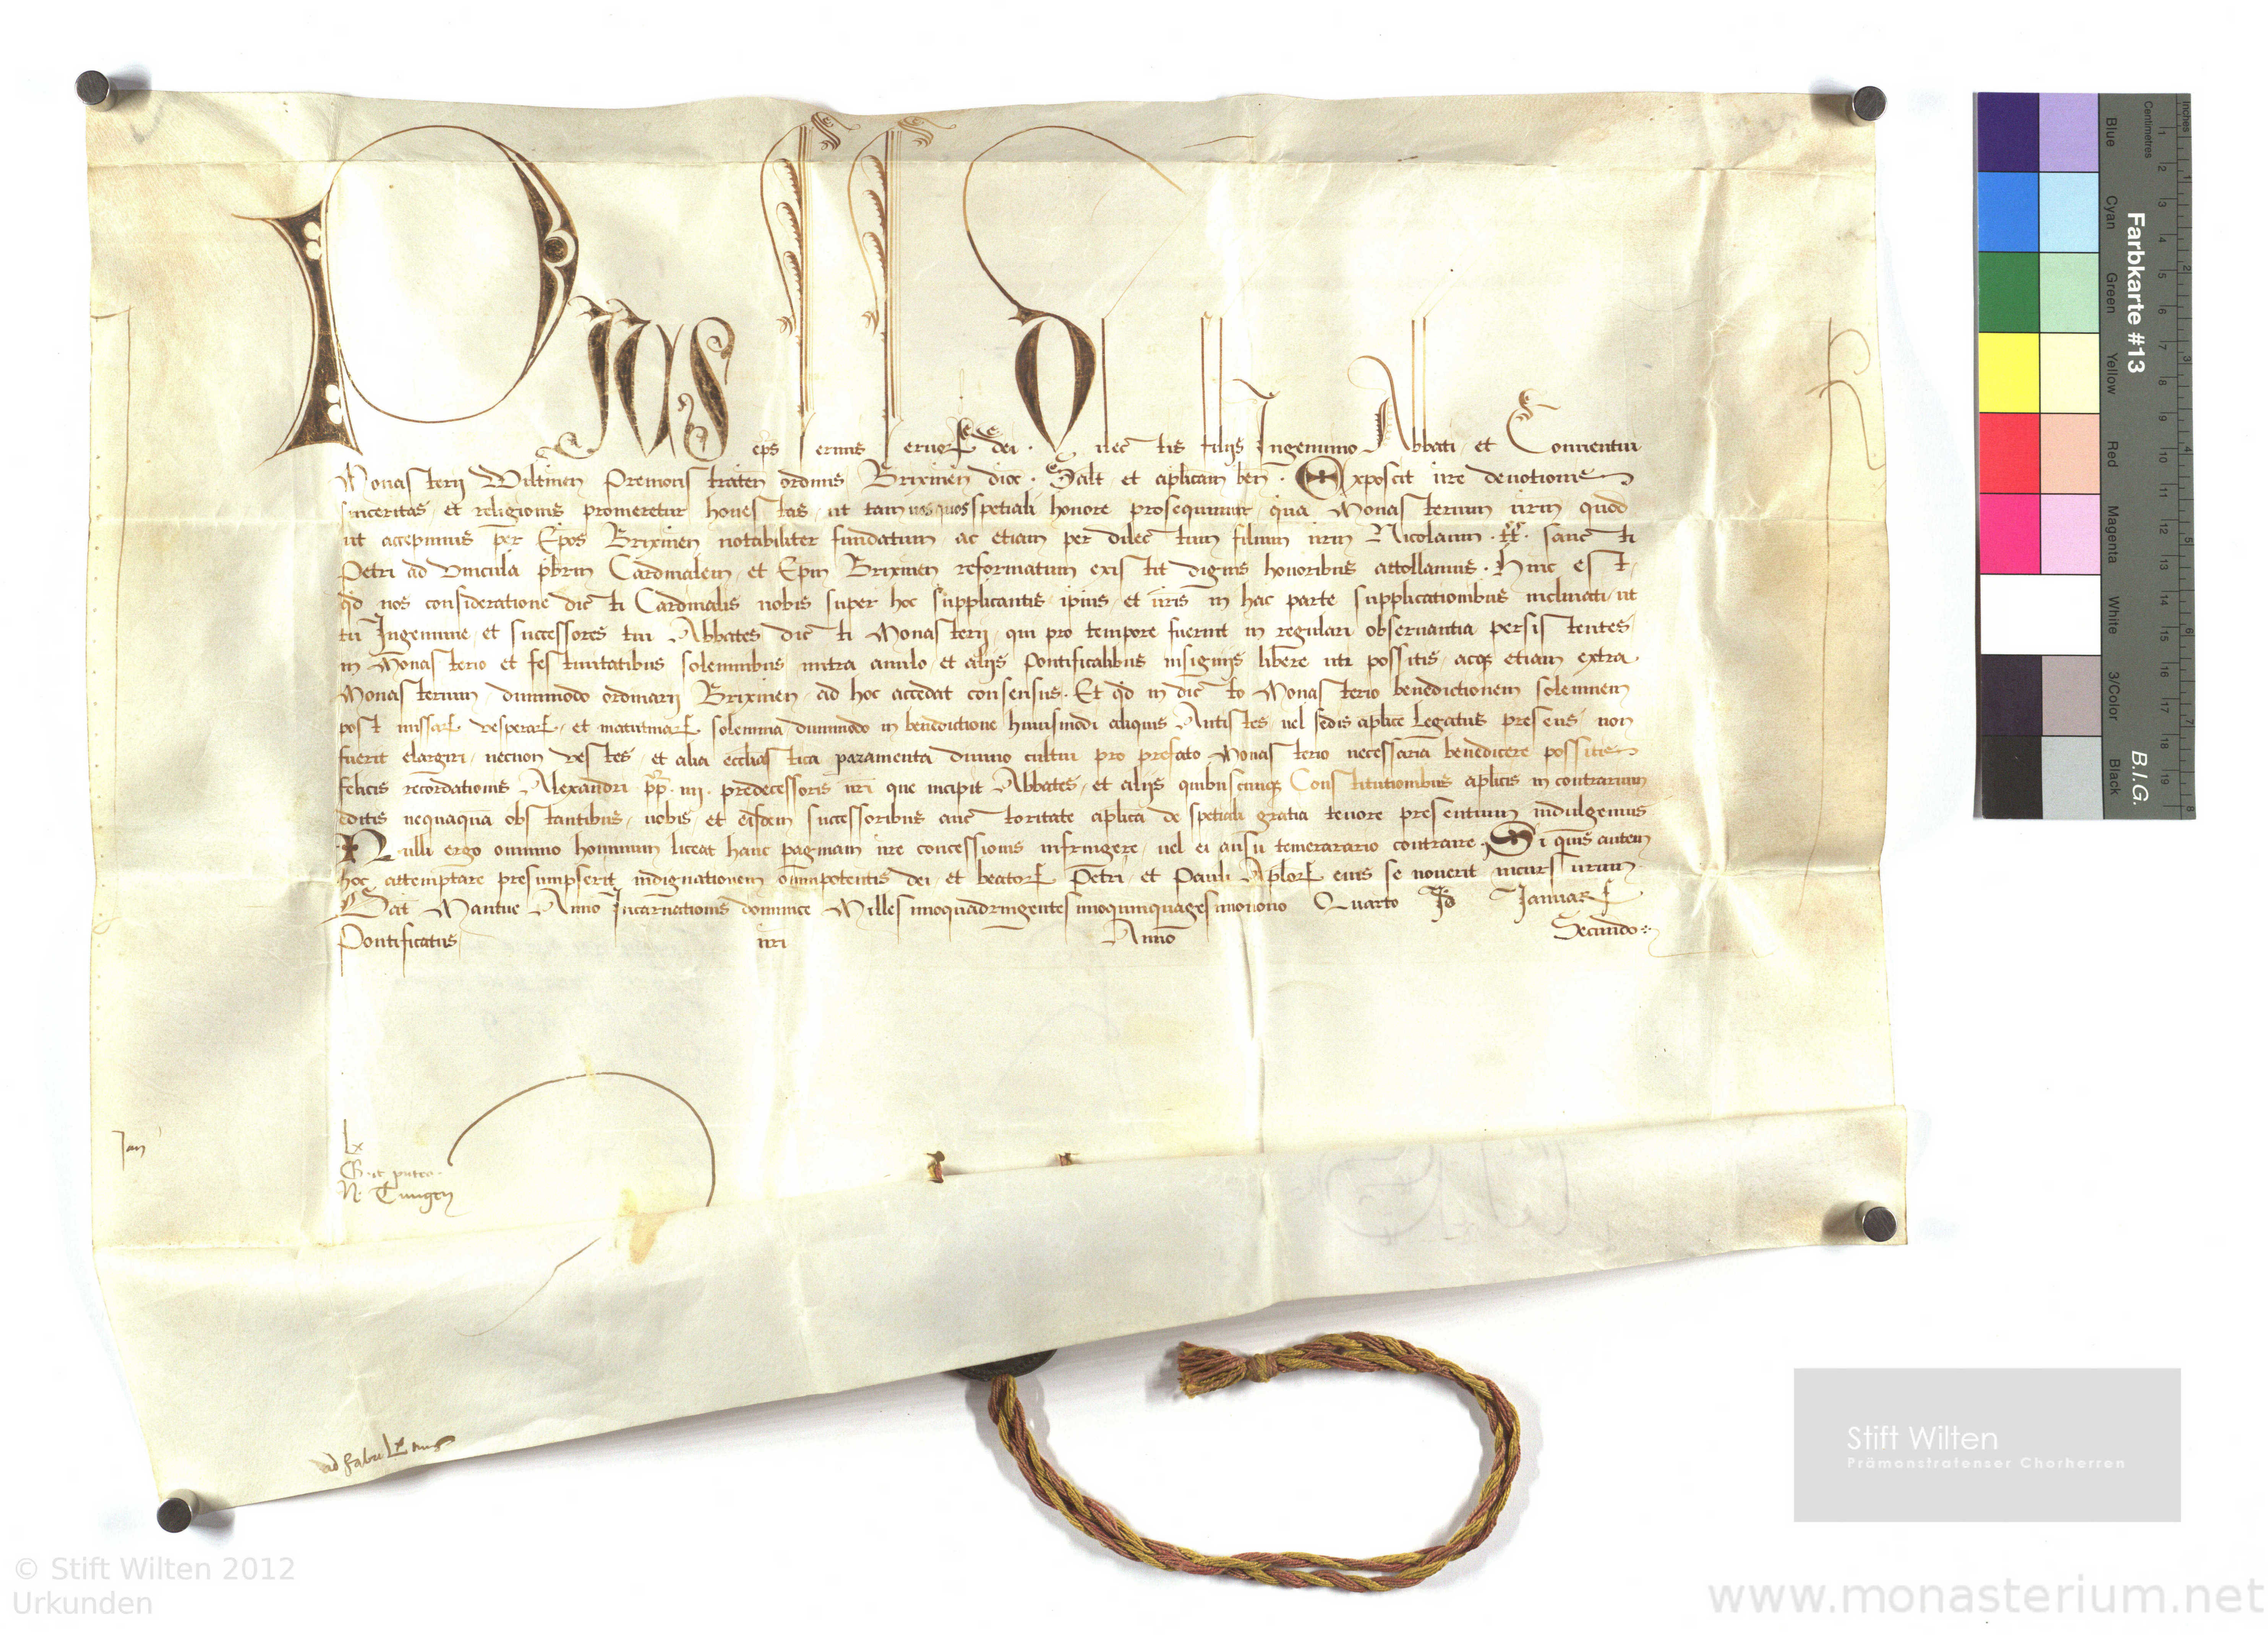 Pius ep̄s seruus seruoꝝ dei. Dilectis filijs Ingenuino Abbati, et Conuentui
Monasterij Wiltinen̄ Premonstraten̄ ordinis Brixinen̄ dioc̄. Salt̄ et ap̄licam ben̄. Exposcit ūre deuotionis
sinceritas, et religionis promeretur honestas, ut tam uos quos spetiali honore prosequimur, qua Monasterium ūrm̄ quod
ut accepimus per Ep̄os Brixinen̄ notabiliter fundatum, ac etiam per dilectum filium ūrm̄ Nicolaum. tt̄. sancti
Petri ad Vincula pb̄rm Cardinalem, et Ep̄m Brixinen̄ reformatum existit dignis honoribus attollamus. Hinc est,
qd̄ nos consideratione dicti Cardinalis nobis super hoc supplicantis, ip̄ius, et ūris in hac parte supplicationibus inclinati, ut
tu Ingenuine, et successores tui Abbates dicti Monasterij, qui pro tempore fuerint in regulari obseruantia persistentes,
in Monasterio et festiuitatibus solemnibus mitra anulo et alijs Pontificalibus insignijs libere uti possitis, acq̄ etiam extra
Monasterium dummodo ordinarij Brixinen̄ ad hoc accedat consensus. Et qd̄ in dicto Monasterio benedictionem solemnem
post missaꝝ vesperaꝝ, et matutinaꝝ solemnia dummodo in benedictione huiusmodi aliquis Antistes uel sedis ap̄lice Legatus presens non
fuerit elargiri, necnon vestes, et alia eccl̄iastica paramenta diuino cultui pro prefato Monasterio necessaria benedicere possitis
felicis recordationis Alexandri pp̄. iiij. predecessoris nr̄i que incipit Abbates, et alijs quibuscunq̄ Constitutionibus ap̄licis in contrarium
editis nequaquā obstantibus, uobis, et eisdem successoribus auctoritate ap̄lica de spetiali gratia tenore presentium indulgemus
Nulli ergo omnino hominum liceat hanc paginam nr̄e concessionis infringere, uel ei ausu temerarario contraire. Si quis autem
hoc attemptare presumpserit, indignationem om̄ipotentis dei, et beatoꝝ Petri, et Pauli Ap̄loꝝ eius se nouerit incursurum.
Dat̄ Mantue Anno Incarnationis dominice Millesimoquadringentesimoquinquagesimonono Quarto Id̄ Januaꝝ
Pontificatus nr̄i Anno Secundo
Jan
Lx
G. de puteo.
N. Tungen
© Stift Wilten 2012
Urkunden
Stift Wilten
Prämonstratenser Chorherren
www.monasterium.net
Farbkarte #13
B.I.G.
Blue Cyan Green Yellow Red Magenta White 3/Color Black
Centimetres
Inches